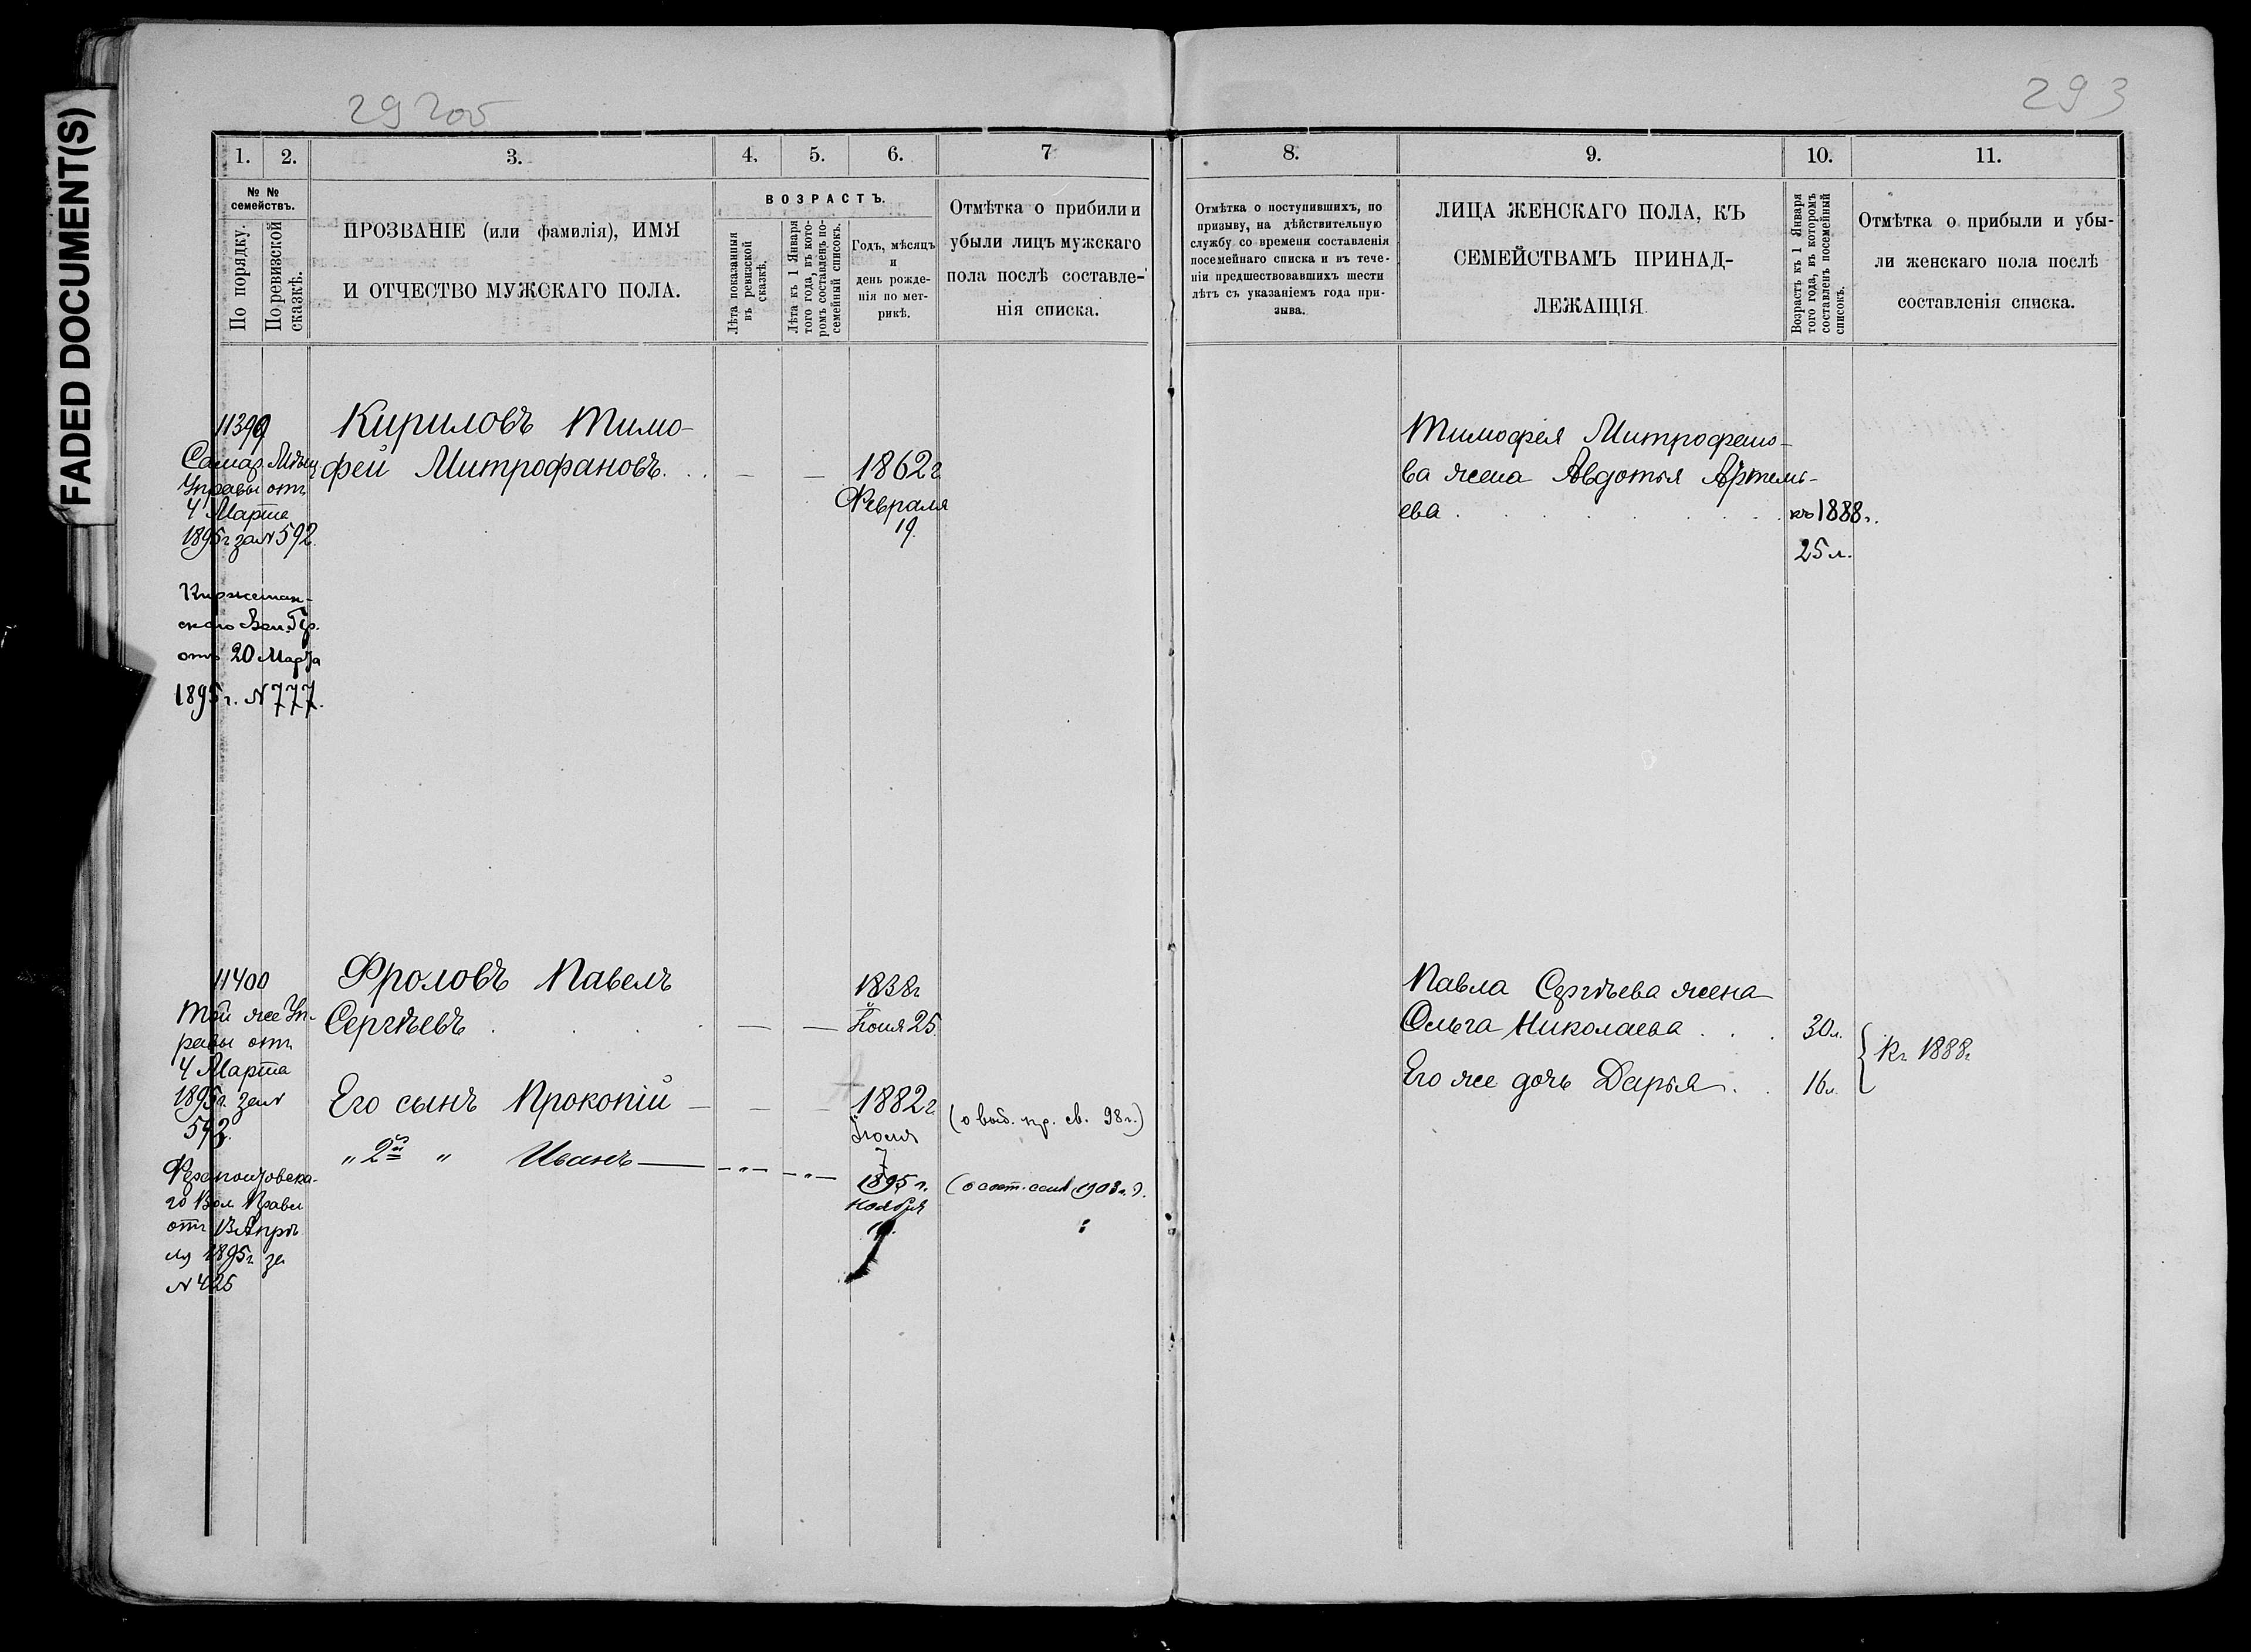 FADED DOCUMENT(S)
292об
293
1. 2. 3. 4. 5. 6. 7
№ №
семействъ.
По порядку.
По ревизской
сказкѣ.
ПРОЗВАНІЕ (или фамилія), ИМЯ
И ОТЧЕСТВО МУЖСКАГО ПОЛА.
ВОЗРАСТЪ.
Лѣта показанныя
въ ревизской
сказкѣ.
Лѣта къ 1 Января
того года, въ кото-
ромъ составленъ по-
семейный списокъ.
Годъ, мѣсяцъ
и
день рожде-
нія по мет-
рикѣ.
Отмѣтка о прибыли и
убыли лицъ мужскаго
пола послѣ составле-
нія списка.
8. 9. 10. 11.
Отмѣтка о поступившихъ, по
призыву, на дѣйствительную
службу со времени составленія
посемейнаго списка и въ тече-
ніи предшествовавшихъ шести
лѣтъ съ указаніемъ года при-
зыва.
ЛИЦА ЖЕНСКАГО ПОЛА, КЪ
СЕМЕЙСТВАМЪ ПРИНАД-
ЛЕЖАЩІЯ.
Возрастъ къ 1 Января
того года, въ которомъ
составленъ посемейный
списокъ.
Отмѣтка о прибыли и убы-
ли женскаго пола послѣ
составленія списка.
11399
Самар. Мѣщ.
Управы отъ
4 Марта
1895г за № 592.
отъ 20 Марта
1895г. № 777.
Кириловъ Тимо-
фей Митрофановъ. . . — —
1862г
Февраля
19.
Тимофея Митрофано-
ва жена Авдотья Артемь-
ева . . . . . . .
къ 1888г.
25 л.
11400
Той же Уп-
равы отъ
4 Марта
1895г. за №
592.
го Вол. Правл
отъ 13 Апрѣ
ля 1895г за
№ 425
Фроловъ Павелъ
Сергѣевъ . . . . — —
1838г
Іюня 25
Его сынъ Прокопій — — —
1882г.
Іюля
7
(о выб. пр. св. 98г.)
„ 2й „ Иванъ — „ — „ —
1895г.
Ноября
(о сост. 1903г.).
Павла Сергѣева жена
Ольга Николаева . . . 30л.
Его же дочь Дарья . . 16л.
Къ 1888г